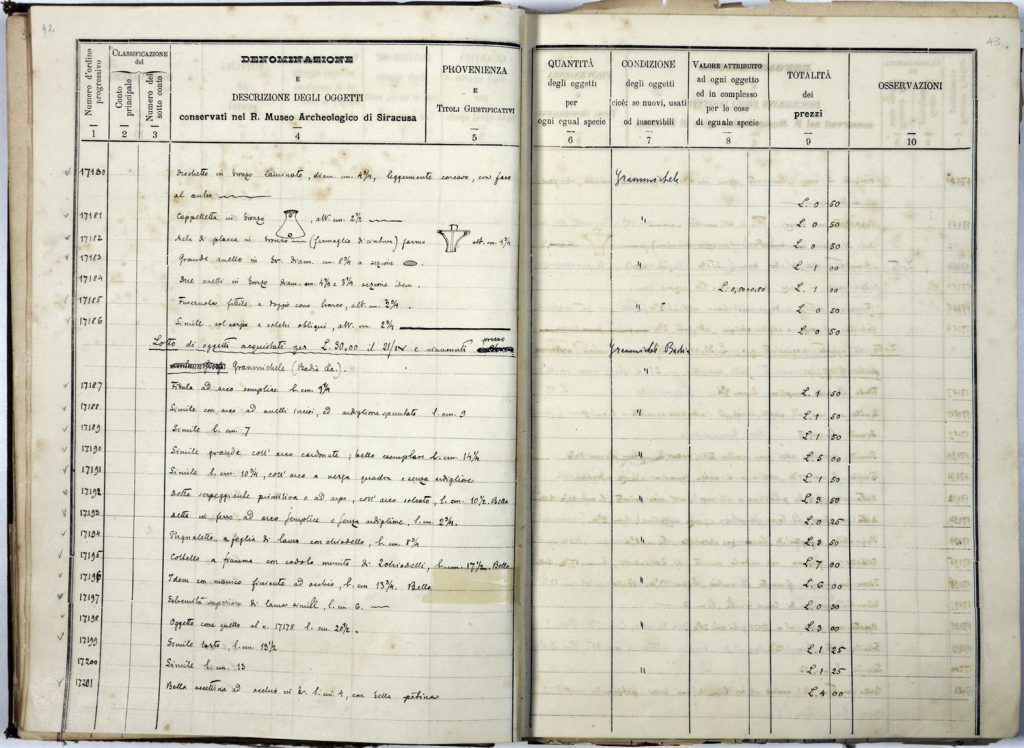 42
43
Numero d'ordine progressivo
1
CLASSIFICAZIONE del
Conto principale
2
Numero del sotto conto
3
DENOMINAZIONE
E
DESCRIZIONE DEGLI OGGETTI
conservati nel R. Museo Archeologico di Siracusa
4
PROVENIENZA
E
TITOLI GIUSTIFICATIVI
5
QUANTITÀ
degli oggetti
per
ogni egual specie
6
CONDIZIONE
degli oggetti
cioè: se nuovi, usati
od inservibili
7
VALORE ATTRIBUITO
ad ogni oggetto
ed in complesso
per le cose
di eguale specie
8
TOTALITÀ
dei
prezzi
9
OSSERVAZIONI
10
17180 Dischetto in bronzo laminato, diam. cm. 4 3/4, leggermente concavo, con foro Granmichele
al centro L. 0 50
17181 Cappelletta in bronzo , alt. cm. 2 1/2 " L. 0 50
17182 di placca in bronzo (fermaglio di cintura) forma alt. cm. L. 0 50
17183 Grande anello in br. diam. cm. 8 3/4 a sezione . " L. 1 00
17184 Due anelli in bronzo diam. cm. 4 3/4 e 3 3/4 sezione idem. L. 0,50+0,50 L. 1 00
17185 Fuseruola fittile a doppio cono tronco, alt. cm. " L. 0 50
17186 Simile col corpo a solchi obliqui, alt. cm. 2 3/4 L. 0 50
Lotto di oggetti acquistati per L. 30.00 il e rinvenuti presso Granmichele Badia
Granmichele (Badia ). "
17187 Fibula ad arco semplice l. cm. L. 1 50
17188 Simile con arco ad anelli incisi, ed ardiglione spuntato l. cm. 9 " L. 1 50
17189 Simile l. cm. 7 L. 1 50
17190 Simile grande coll' arco ; bello esemplare l. cm. 14 1/2 " L. 5 00
17191 Simile l. cm. 10 3/4, coll' arco a verga quadra e senza ardiglione L. 1 50
17192 Detta serpeggiante primitiva o ad arpa, coll' arco solcato, l. cm. 10 1/2. Bella " L. 3 50
17193 Detta in ferro ad arco semplice e senza ardiglione, l. cm. L. 0 25
17194 Pugnaletto a foglia di lauro con chiodello, l. cm. " L. 2 50
17195 Coltello a fiamma con codolo munito di 2 chiodelli, l. cm. 17 1/2. Bello L. 7 00
17196 Idem con manico finiente ad occhio, l. cm. 13 3/4. Bello " L. 6 00
17197 Estremità superiore di lama simile, l. cm. 6. L. 0 30
17198 Oggetto come quello al n. 17178 l. cm. 20 1/2. " L. 3 00
17199 Simile torto, l. cm. 13 1/2 L. 1 25
17200 Simile l. cm. 13 " L. 1 25
17201 Bella accettina ad occhio in br. l. cm. 4, con bella patina L. 4 00